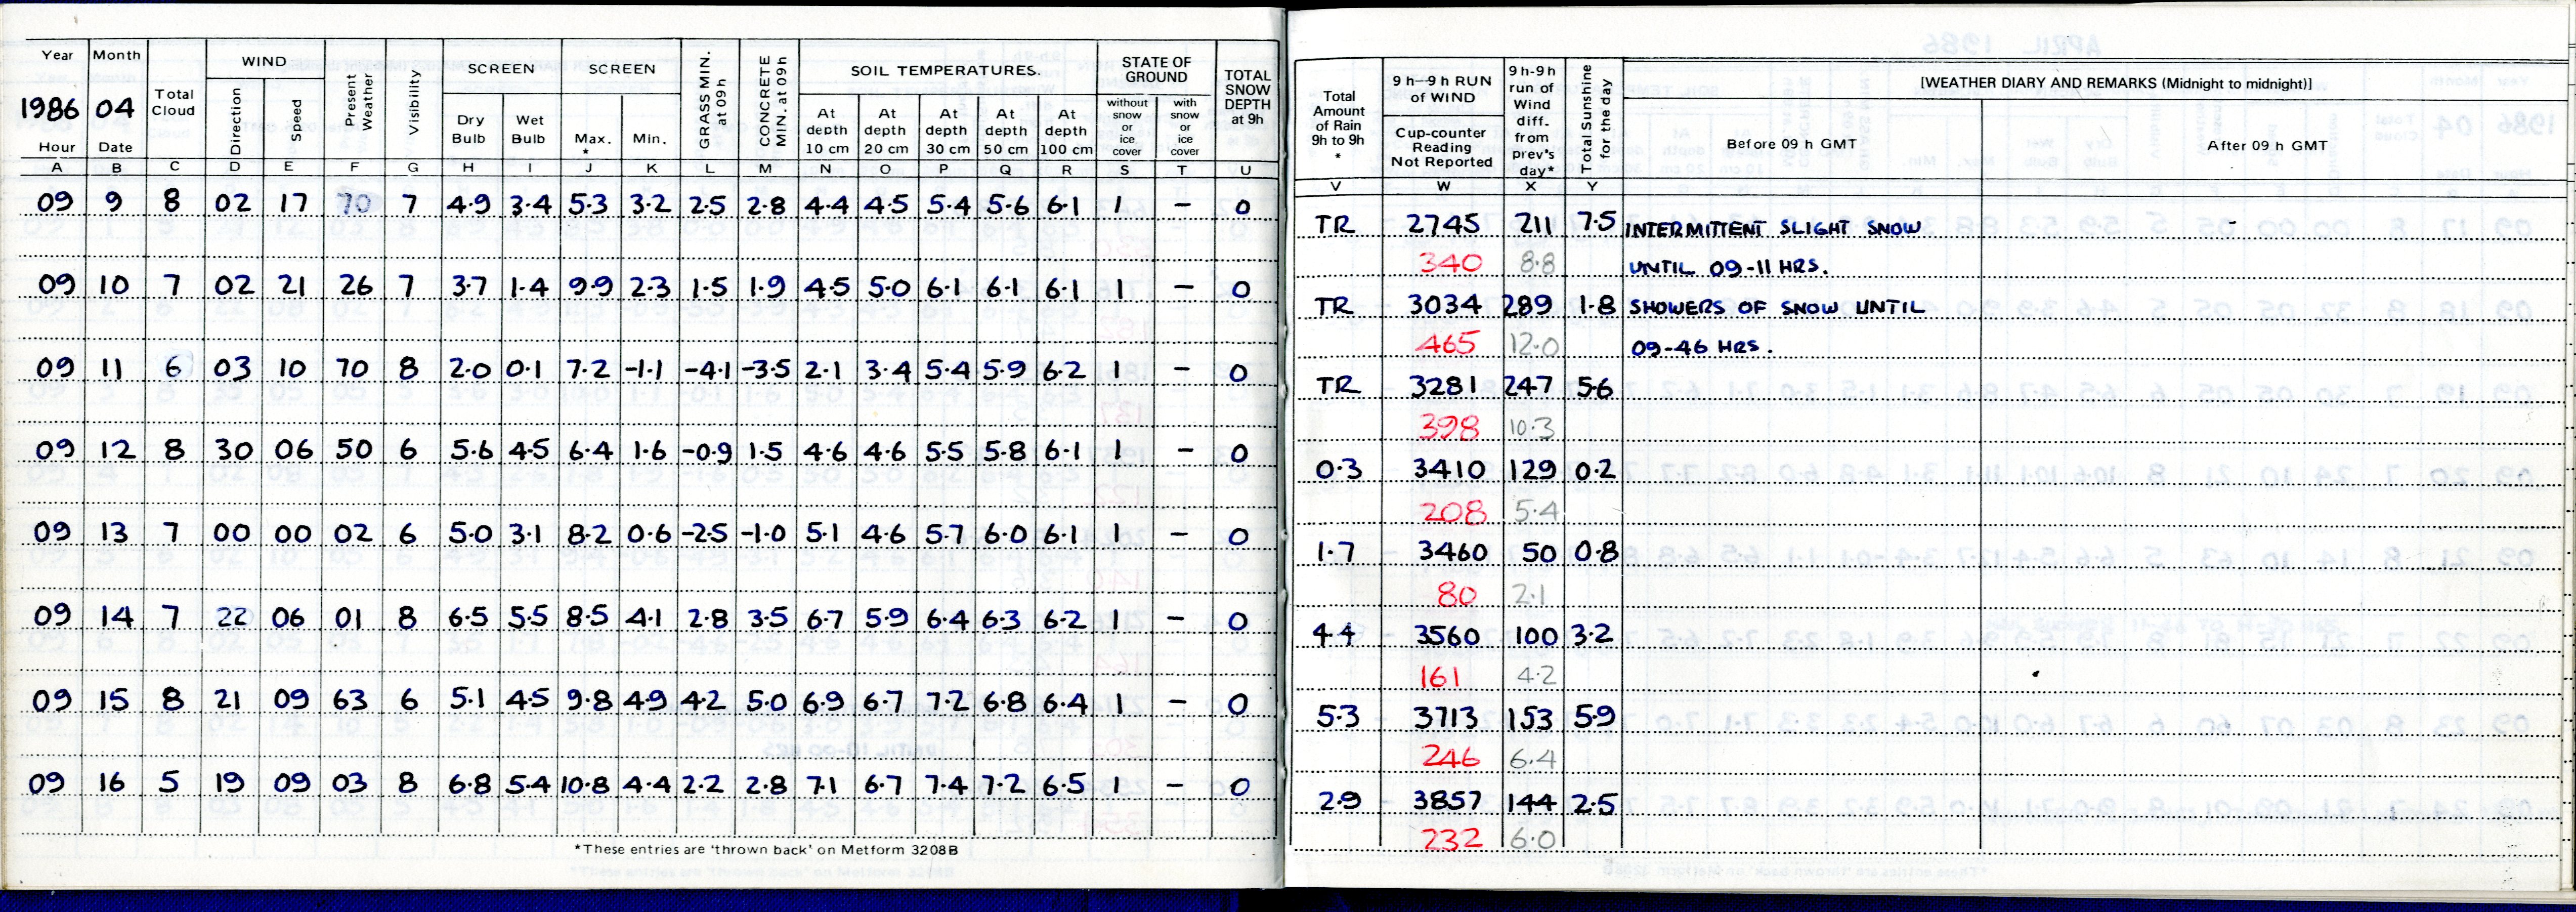 Year Month Total Cloud WIND Present Weather Visibility SCREEN SCREEN GRASS MIN. at 09h CONCRETE MIN. at 09h SOIL TEMPERATURES. STATE OF GROUND TOTAL SNOW DEPTH at 9h
1986 04 Direction Speed Dry Bulb Wet Bulb Max. * Min. At depth 10 cm At depth 20 cm At depth 30 cm At depth 50 cm At depth 100 cm without snow or ice cover with snow or ice cover
Hour Date
A B C D E F G H I J K L M N O P Q R S T U
09 9 8 02 17 70 7 4.9 3.4 5.3 3.2 2.5 2.8 4.4 4.5 5.4 5.6 6.1 1 – 0
09 10 7 02 21 26 7 3.7 1.4 9.9 2.3 1.5 1.9 4.5 5.0 6.1 6.1 6.1 1 – 0
09 11 6 03 10 70 8 2.0 0.1 7.2 -1.1 -4.1 -3.5 2.1 3.4 5.4 5.9 6.2 1 – 0
09 12 8 30 06 50 6 5.6 4.5 6.4 1.6 -0.9 1.5 4.6 4.6 5.5 5.8 6.1 1 – 0
09 13 7 00 00 02 6 5.0 3.1 8.2 0.6 -2.5 -1.0 5.1 4.6 5.7 6.0 6.1 1 – 0
09 14 7 22 06 01 8 6.5 5.5 8.5 4.1 2.8 3.5 6.7 5.9 6.4 6.3 6.2 1 – 0
09 15 8 21 09 63 6 5.1 4.5 9.8 4.9 4.2 5.0 6.9 6.7 7.2 6.8 6.4 1 – 0
09 16 5 19 09 03 8 6.8 5.4 10.8 4.4 2.2 2.8 7.1 6.7 7.4 7.2 6.5 1 – 0
*These entries are 'thrown back' on Metform 3208B
Total Amount of Rain 9h to 9h * 9h–9h RUN of WIND Cup-counter Reading Not Reported 9h-9h run of Wind diff. from prev's day* Total Sunshine for the day [WEATHER DIARY AND REMARKS (Midnight to midnight)]
Before 09 h GMT After 09 h GMT
V W X Y
TR 2745 211 7.5 INTERMITTENT SLIGHT SNOW -
340 8.8 UNTIL 09-11 HRS.
TR 3034 289 1.8 SHOWERS OF SNOW UNTIL
465 12.0 09-46 HRS.
TR 3281 247 5.6
398 10.3
0.3 3410 129 0.2
208 5.4
1.7 3460 50 0.8
80 2.1
4.4 3560 100 3.2
161 4.2
5.3 3713 153 5.9
246 6.4
2.9 3857 144 2.5
232 6.0